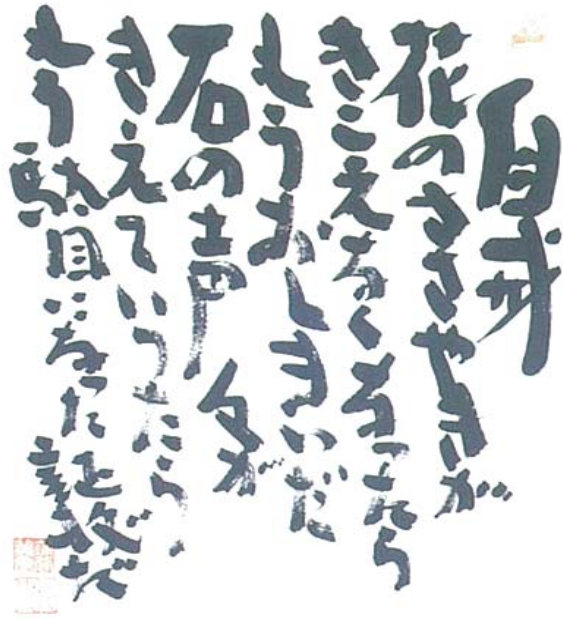 自戒
花のささやきが
きこえなくなったら
もうおしまいだ
石の声が
きえていったら
もう駄目になった証拠だ